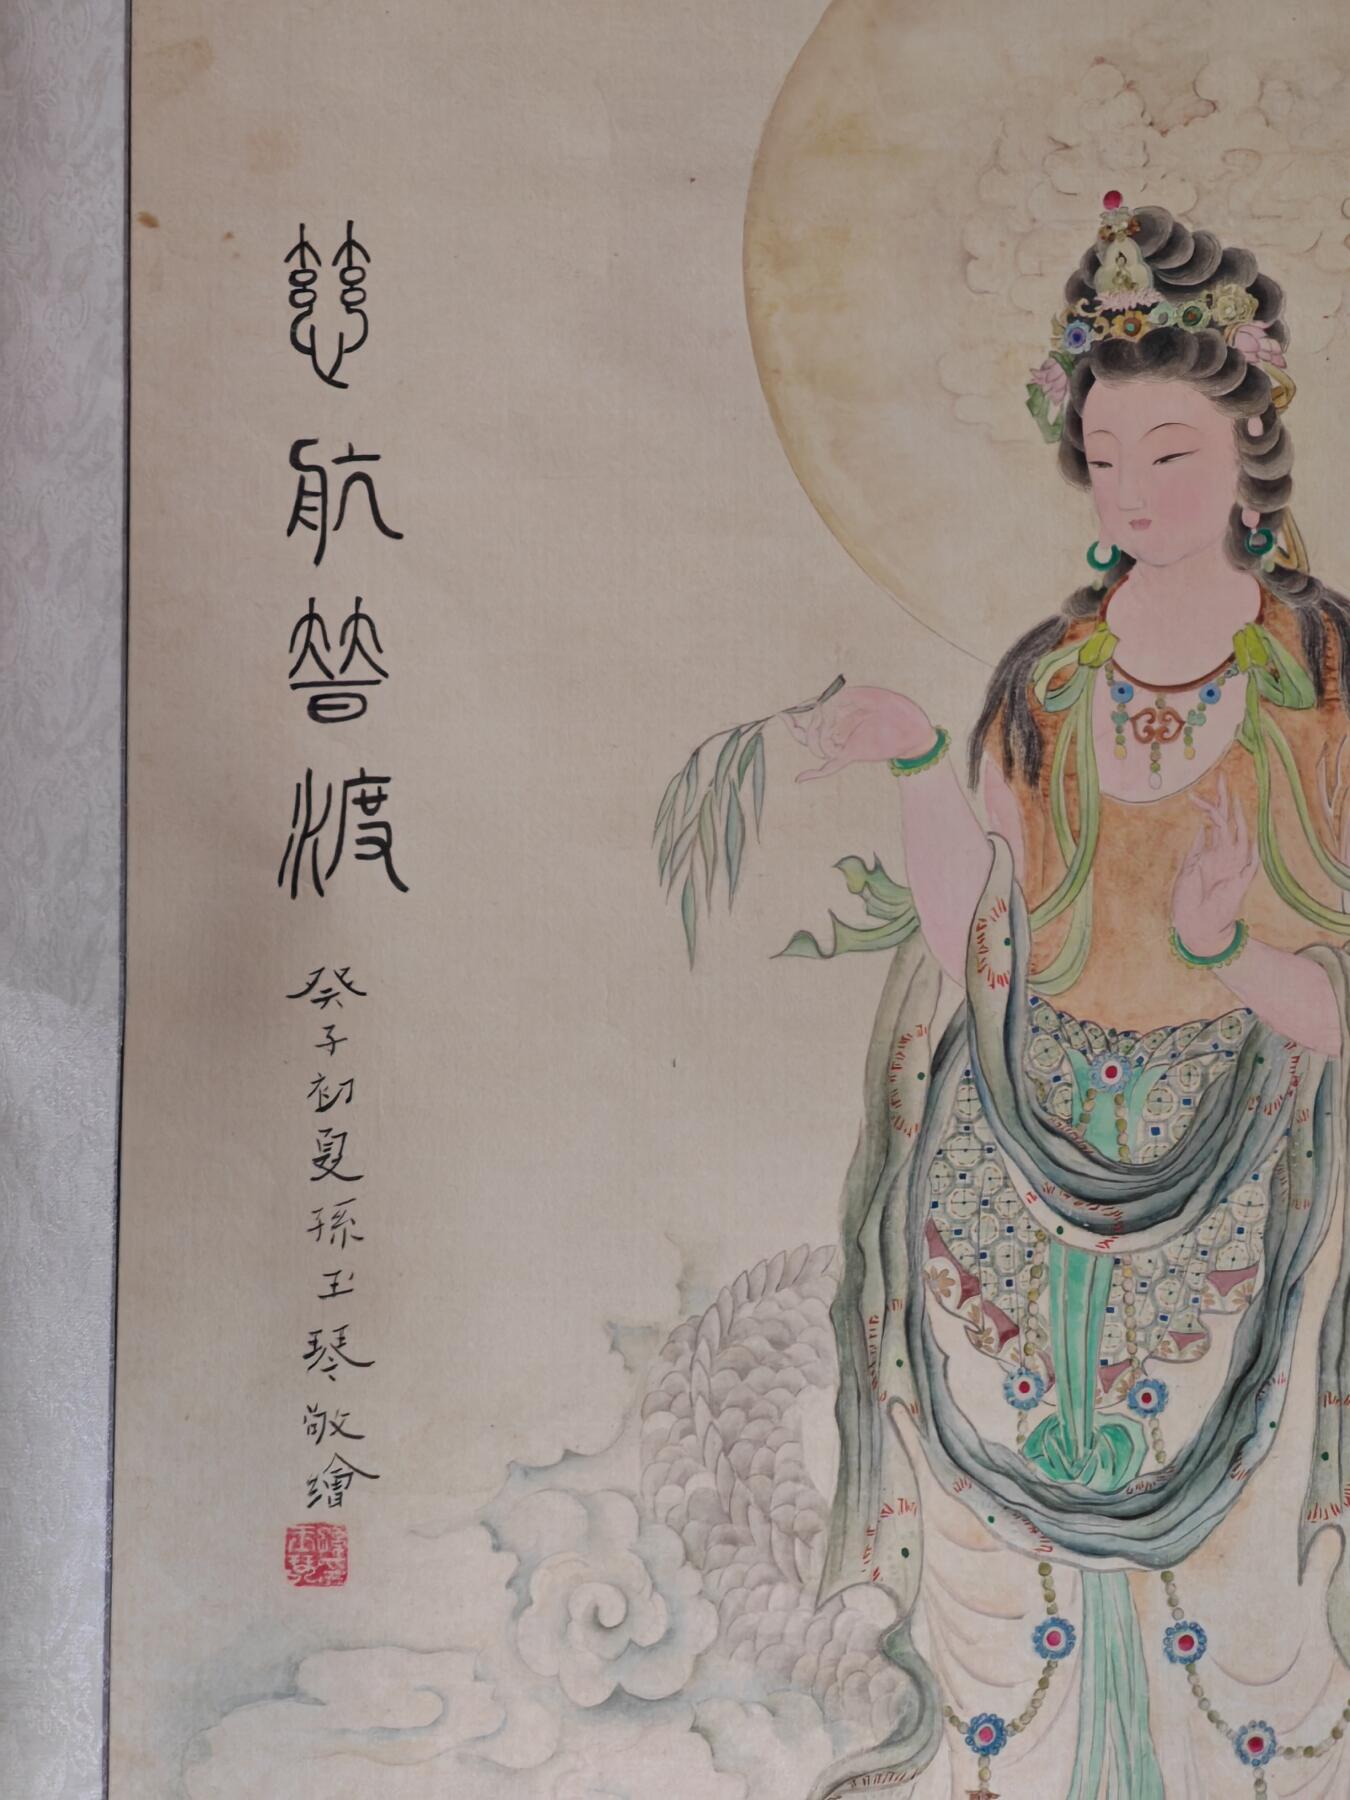 慈航普渡
癸子初夏孫玉琴敬繪